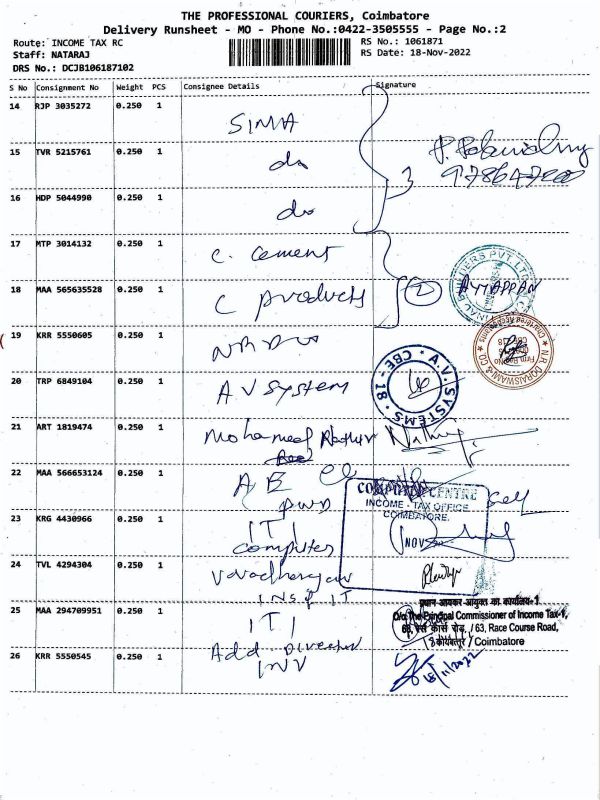 THE PROFESSIONAL COURIERS, Coimbatore
Delivery Runsheet - MO - Phone No.:0422-3505555 - Page No.:2
Route: INCOME TAX RC
RS No.: 1061871
Staff: NATARAJ
RS Date: 18-Nov-2022
DRS No.: DCJB106187102
S No Consignment No Weight PCS Consignee Details Signature
14 RJP 3035272 0.250 1 SIMA
15 TVR 5215761 0.250 1 do
16 HDP 5044990 0.250 1 do
3
17 MTP 3014132 0.250 1 C. Cement
18 MAA 565635528 0.250 1 C products 2 AYYAPPAN
19 KRR 5550605 0.250 1
N.R. DORAISWAMI & CO
Chartered Accountants
20 TRP 6849104 0.250 1 A V System
A.V. SYSTEMS
CBE - 18
21 ART 1819474 0.250 1 Mohameed
22 MAA 566653124 0.250 1 A E
PWD
COMPUTER CENTRE
INCOME - TAX OFFICE
COIMBATORE.
NOV
23 KRG 4430966 0.250 1 ITI
Computer
24 TVL 4294304 0.250 1 Varadharajan
INSP IT
प्रधान आयकर आयुक्त का कार्यालय-1
O/o. The Principal Commissioner of Income Tax-1,
63, रेस कोर्स रोड, / 63, Race Course Road,
कोयंबत्तूर / Coimbatore
25 MAA 294709951 0.250 1 ITI
Add Director
INV
26 KRR 5550545 0.250 1
18/11/2022